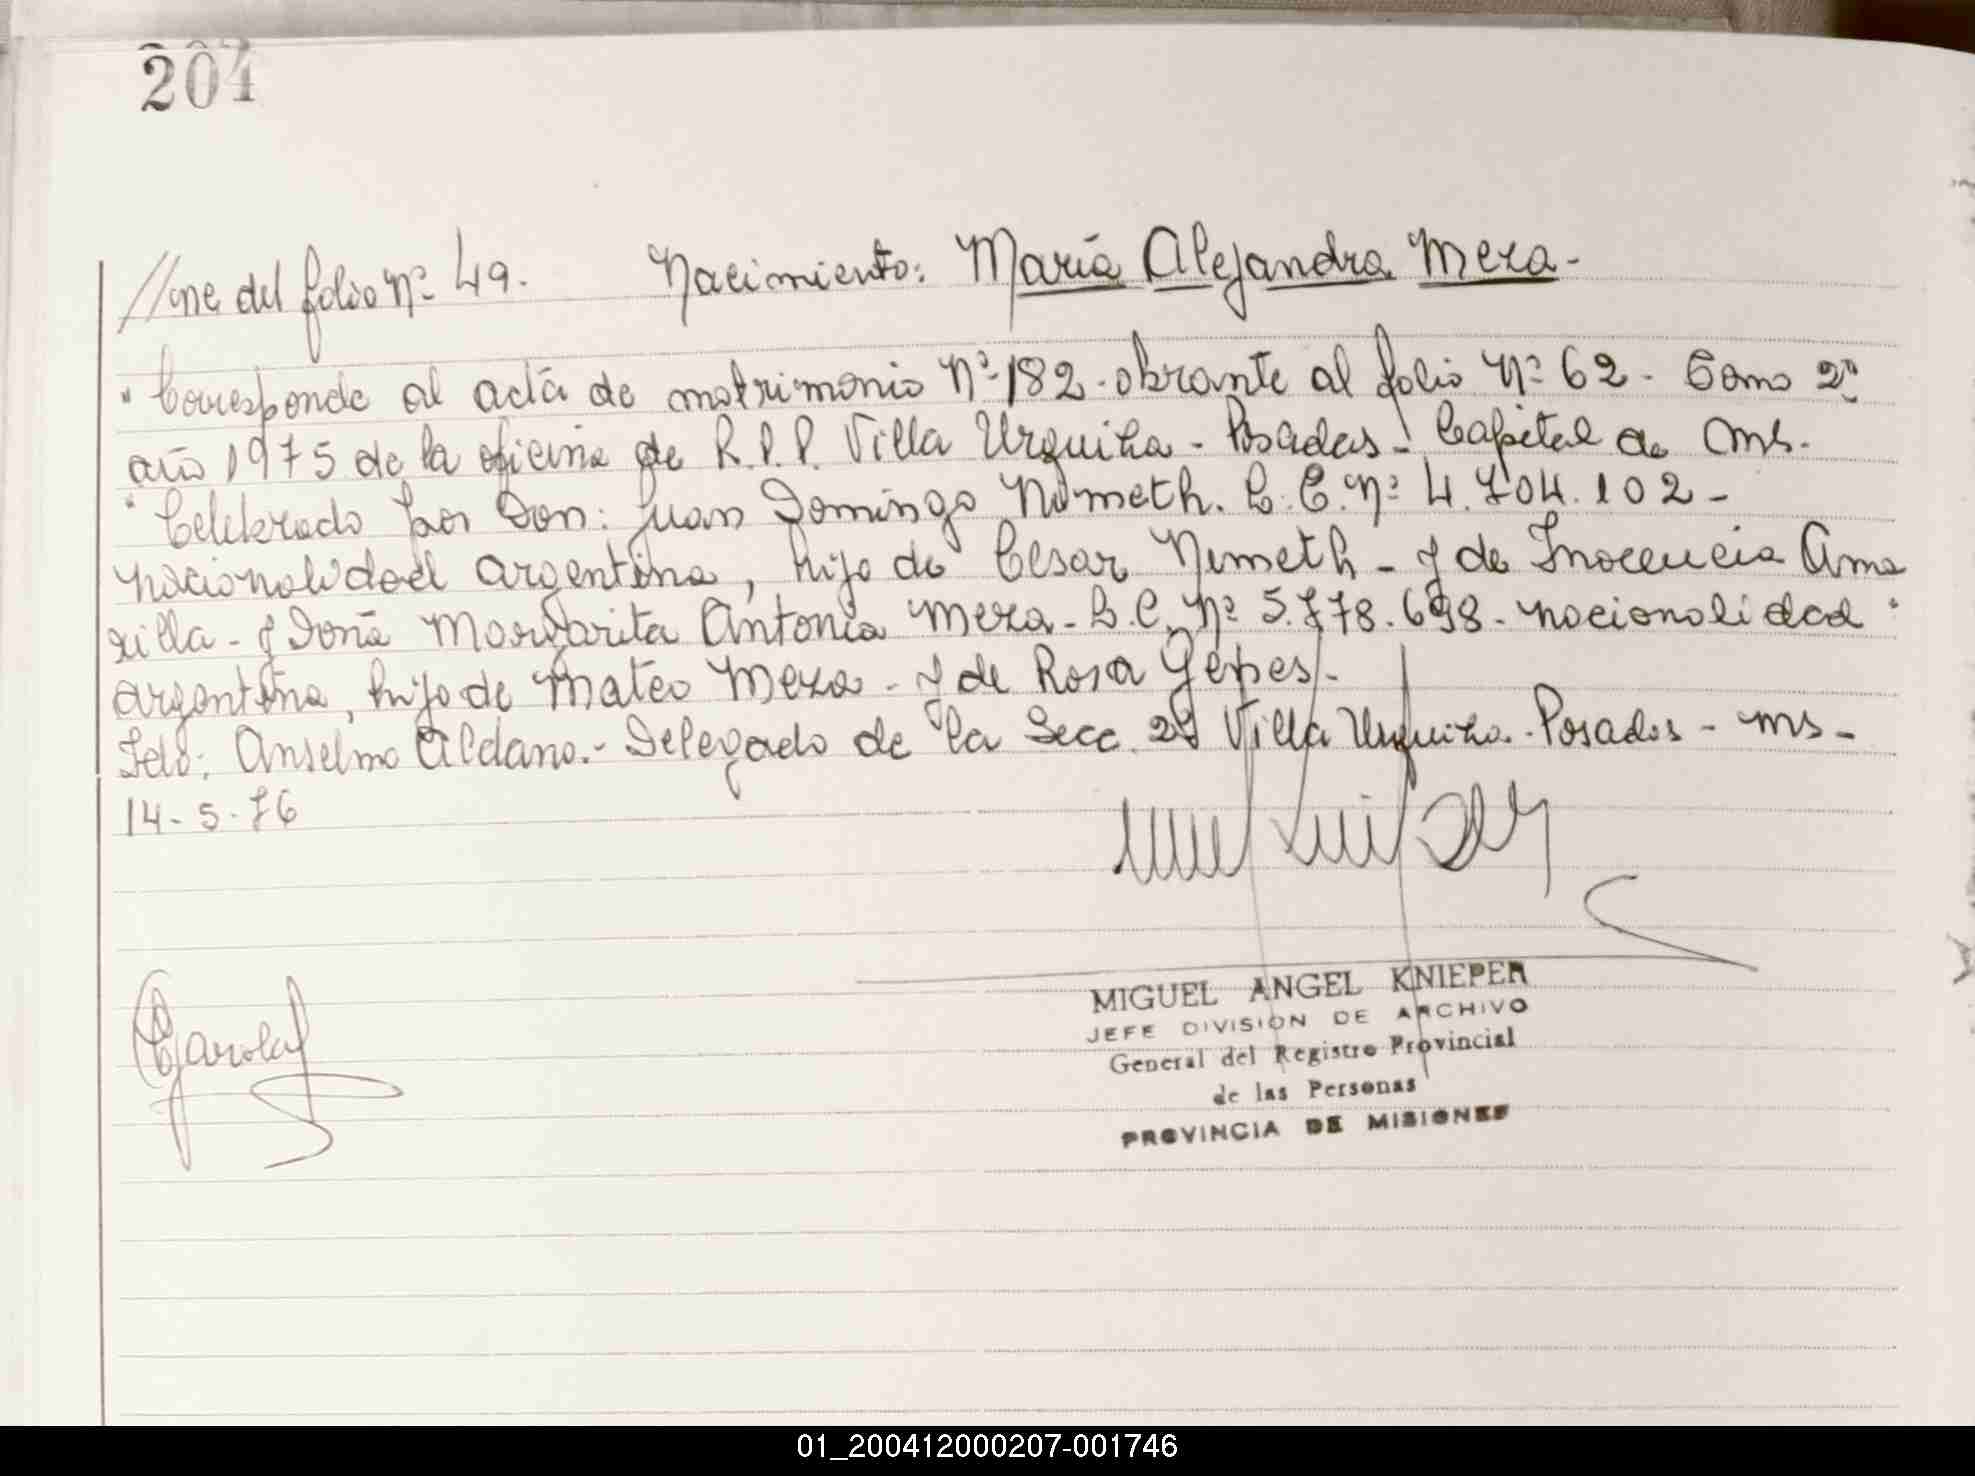 204
//ne del folio Nº 49. Nacimiento: María Alejandra Meza.-
"Corresponde al acta de matrimonio Nº 182. obrante al folio Nº 62. Tomo 2º
año 1975 de la oficina de R.P.P. Villa Urquiza - Posadas - Capital de Ms.
"Celebrado por Don: Juan Domingo Nemeth. L.E. Nº 4.704.102 -
nacionalidad argentina, hijo de Cesar Nemeth - y de Inocencia Ama
rilla - y Doña Margarita Antonia Meza - L.C. Nº 5.778.698 - nacionalidad
argentina, hija de Mateo Meza - y de Rosa Yepes. -
Fdo: Anselmo Aldano. - Delegado de la Secc. 2ª Villa Urquiza. Posadas - Ms -
14-5-76
MIGUEL ANGEL KNIEPER
JEFE DIVISION DE ARCHIVO
General del Registro Provincial
de las Personas
PROVINCIA DE MISIONES
01_200412000207-001746